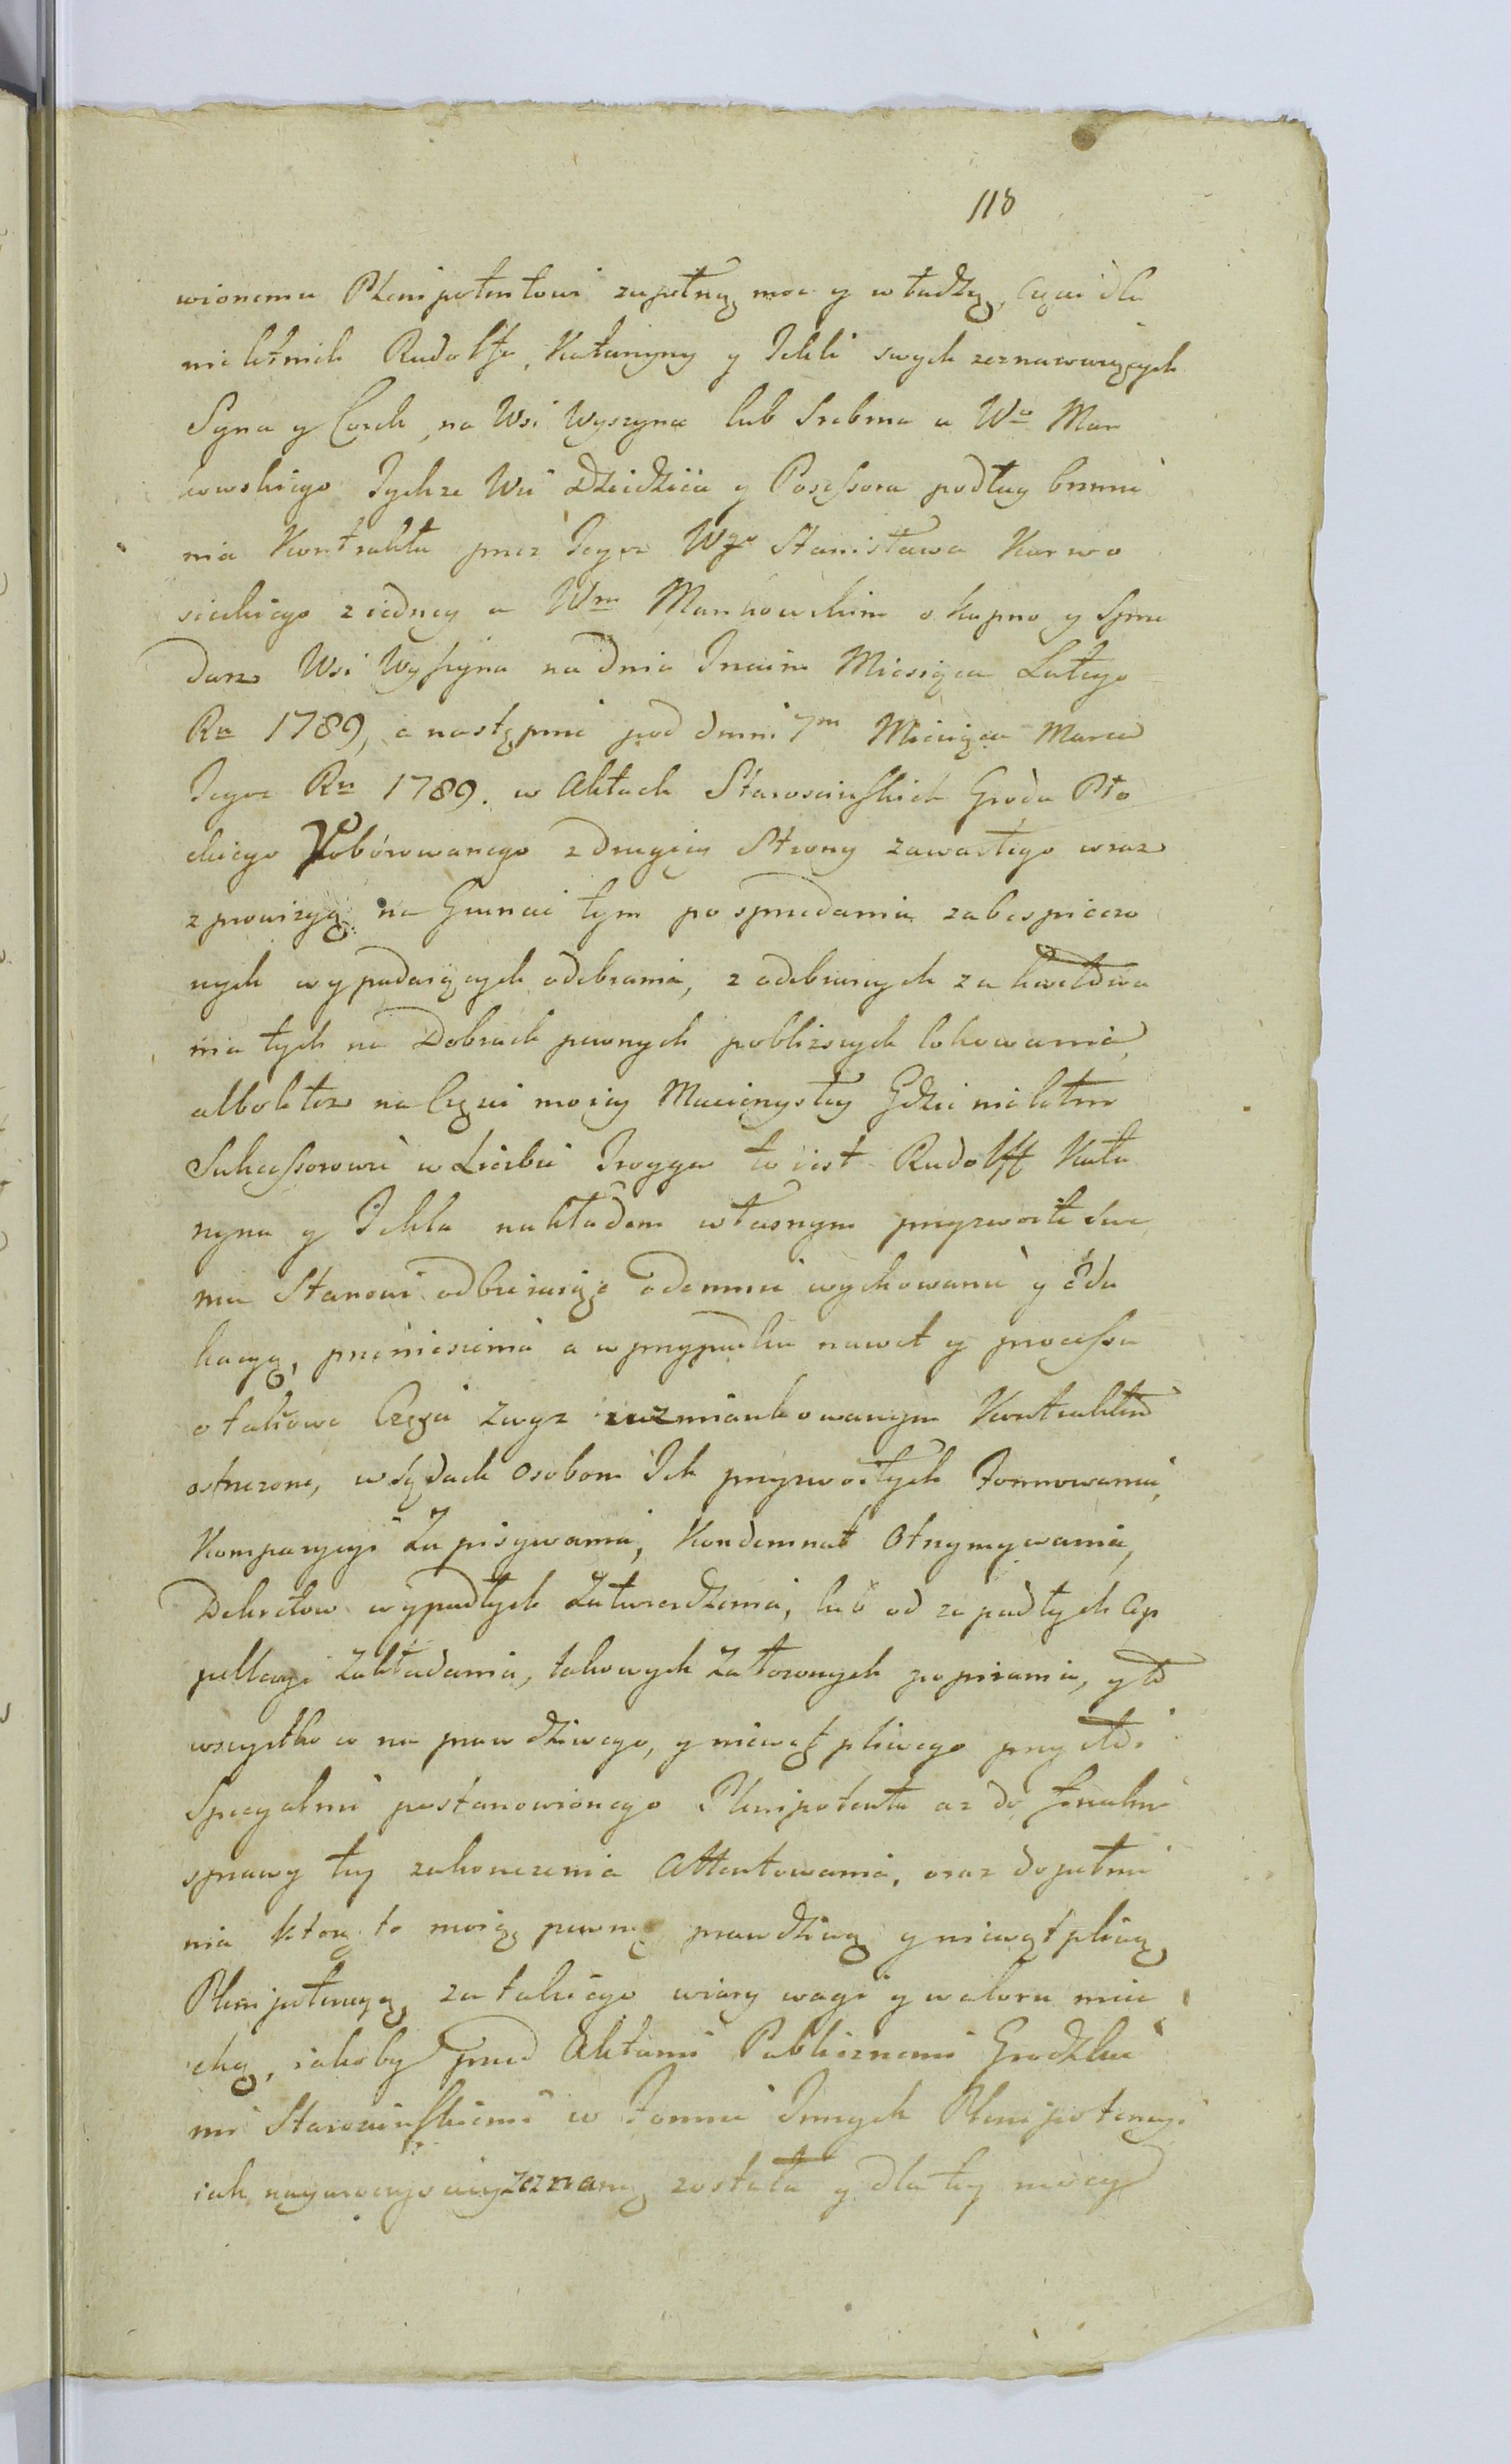 118
wionemu Plenipotentowi zupełną moc y władzą, Częsci dla
nieletnich Rudolfa, Katarzyny y Tekli swych zeznawaiących
Syna y Corek, na Wsi Wyszyna lub Srebrna u Wo Mar
kowskiego Tychze Wsi Dziedzica y Possessora podług brzmie
nia Kontraktu przez Tegoz Wgo Stanisława Karwo
sieckiego z iedney a Wm Markowskim o kupno y Sprze
darz Wsi Wyszyna na dniu Trzecim Miesiąca Lutego
Ru 1789, a nastąpnie pod dniem 7m Miesiąca Marca
Tegoz Ru 1789. w Aktach Staroscinskich Grodu Pło
ckiego Roborowanego z drugiey Strony zawartego wraz
z prowizyą na Gruncie tym po sprzedaniu zabespieczo
nych wypadaiących odebrania, z odebranych zakwitowa
nia tych na Dobrach pewnych poblizszych lokowania,
albo tez na Części moiey Macierzystey Gdzie nieletni
Sukcessorowie w Liczbie Troyga to iest Rudolff Kata
rzyna y Tekla nakładem własnym przyzwoite swe
mu Stanowi odbieraią odemnie wychowanie y Edu
kacyą, przeniesienia a w przypadku nawet y processu
o takowe Części zwyz wzmiankowanym Kontraktem
ostrzezone, w Sądach osobom Ich przyzwoitych Formowania,
Komparycyi Zapisywania, Kondemnat Otrzymywania,
Dekretow wypadłych Zatwierdzenia, lub od zapadłych Ap
pellacyi Zakładania, takowych Załozonych popierania, y to
wszystko co na prawdziwego, y niewątpliwego przy tdi
Specyalnie postanowionego Plenipotenta az do finalne
sprawy tey zakonczenia Attentowania, oraz dopełnie
nia ktorą to moią pewną prawdziwą y niewątpliwą
Plenipotencyą, za takiego wiary wagi y waloru miec
chcą, iakoby przed Aktami Publicznemi Grodzkie
mi Staroscinskiemi w Formie Innych Plenipotencyi
iak nayuroczysciey zeznaną została y dla tey mocy